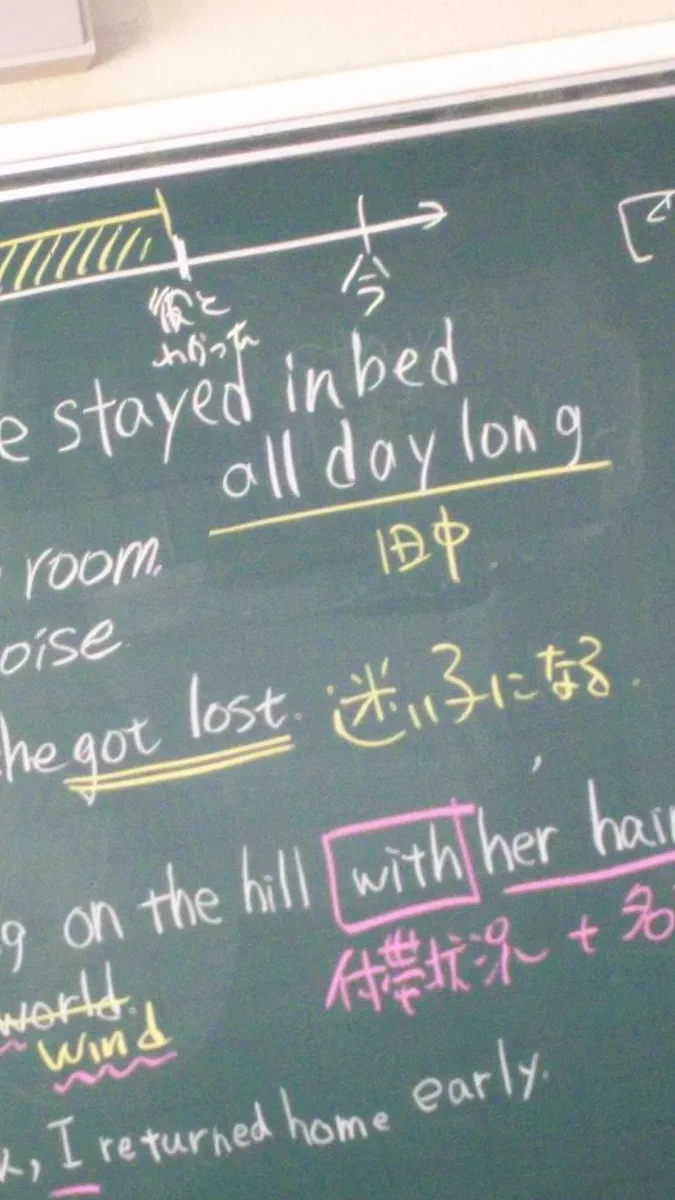 今
わかった
e stayed in bed
all day long
1日中
room.
oise
he got lost. 迷い子になる.
g on the hill with her hair
付帯状況 + 名
world.
wind
k, I returned home early.